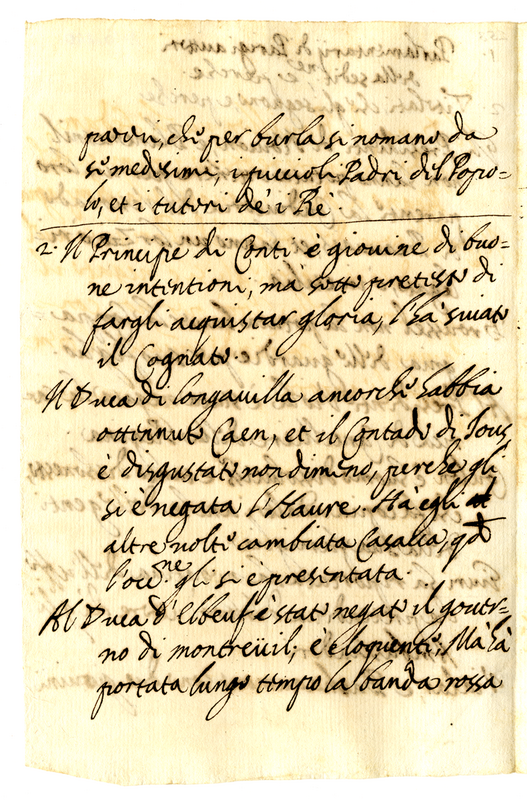 parui, che per burla si nomano da
se medesimi, i piccioli Padri del Popo=
lo, et i tutori de i Rè.
2 Il Principe di Conti è giouine di buo=
ne intentioni, mà sotto pretesto di
fargli acquistar gloria, l'hà suiato
il Cognato.
Il Duca di Longauilla ancorche habbia
ottennuto Caen, et il Contado di
è disgustato nondimeno, perche gli
si è negata l'Haure. Hà egli
altre uolte cambiata Casacca, qdo
l'occne. gli si è presentata.
Al Duca d'Elbeuf è stato negato il gouer=
no di montreüil; è eloquente; Mà hà
portata lungo tempo la banda rossa